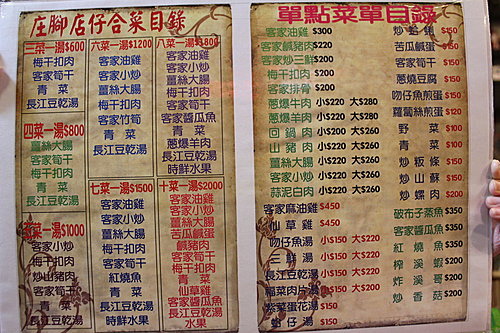 庄腳店仔合菜目錄
三菜一湯$600
梅干扣肉
客家筍干
青菜
長江豆乾湯
四菜一湯$800
薑絲大腸
客家筍干
梅干扣肉
青菜
長江豆乾湯
五菜一湯$1000
客家小炒
梅干扣肉
炒山豬肉
客家筍干
青菜
長江豆乾湯
六菜一湯$1200
客家油雞
客家小炒
薑絲大腸
梅干扣肉
客家竹筍
青菜
長江豆乾湯
七菜一湯$1500
客家油雞
客家小炒
薑絲大腸
梅干扣肉
客家筍干
紅燒魚
青菜
長江豆乾湯
時鮮水果
八菜一湯$1800
客家油雞
客家小炒
薑絲大腸
梅干扣肉
客家筍干
客家醬瓜魚
青菜
蔥爆羊肉
長江豆乾湯
時鮮水果
十菜一湯$2000
客家油雞
客家小炒
薑絲大腸
苦瓜鹹蛋
鹹豬肉
梅干扣肉
客家筍干
青菜
仙草雞
客家醬瓜魚
長江豆乾湯
水果
單點菜單目錄
客家油雞 $300
客家鹹豬肉$220
客家炒三鮮$220
梅干扣肉 $220
客家排骨 $200
蔥爆牛肉 小$220 大$280
蔥爆羊肉 小$220 大$280
回鍋肉 小$200 大$260
山豬肉 小$220 大$260
薑絲大腸 小$220 大$260
客家小炒 小$220 大$260
蒜泥白肉 小$220 大$260
客家麻油雞 $450
仙草雞 $450
吻仔魚湯 小$150 大$220
三鮮湯 小$150 大$220
長江豆乾湯 小$150 大$220
福菜肉片湯 小$150 大$220
紫菜蛋花湯 $150
蛤仔湯 $150
炒蛤蜊 $150
苦瓜鹹蛋 $150
客家筍干 $150
蔥燒豆腐 $150
吻仔魚煎蛋 $150
蘿蔔絲煎蛋 $120
野菜 $100
青菜 $100
炒粄條 $150
炒山蘇 $150
炒螺肉 $200
破布子蒸魚 $350
客家醬瓜魚 $350
紅燒魚 $350
榨溪蝦 $200
炸溪哥 $200
炒香菇 $200